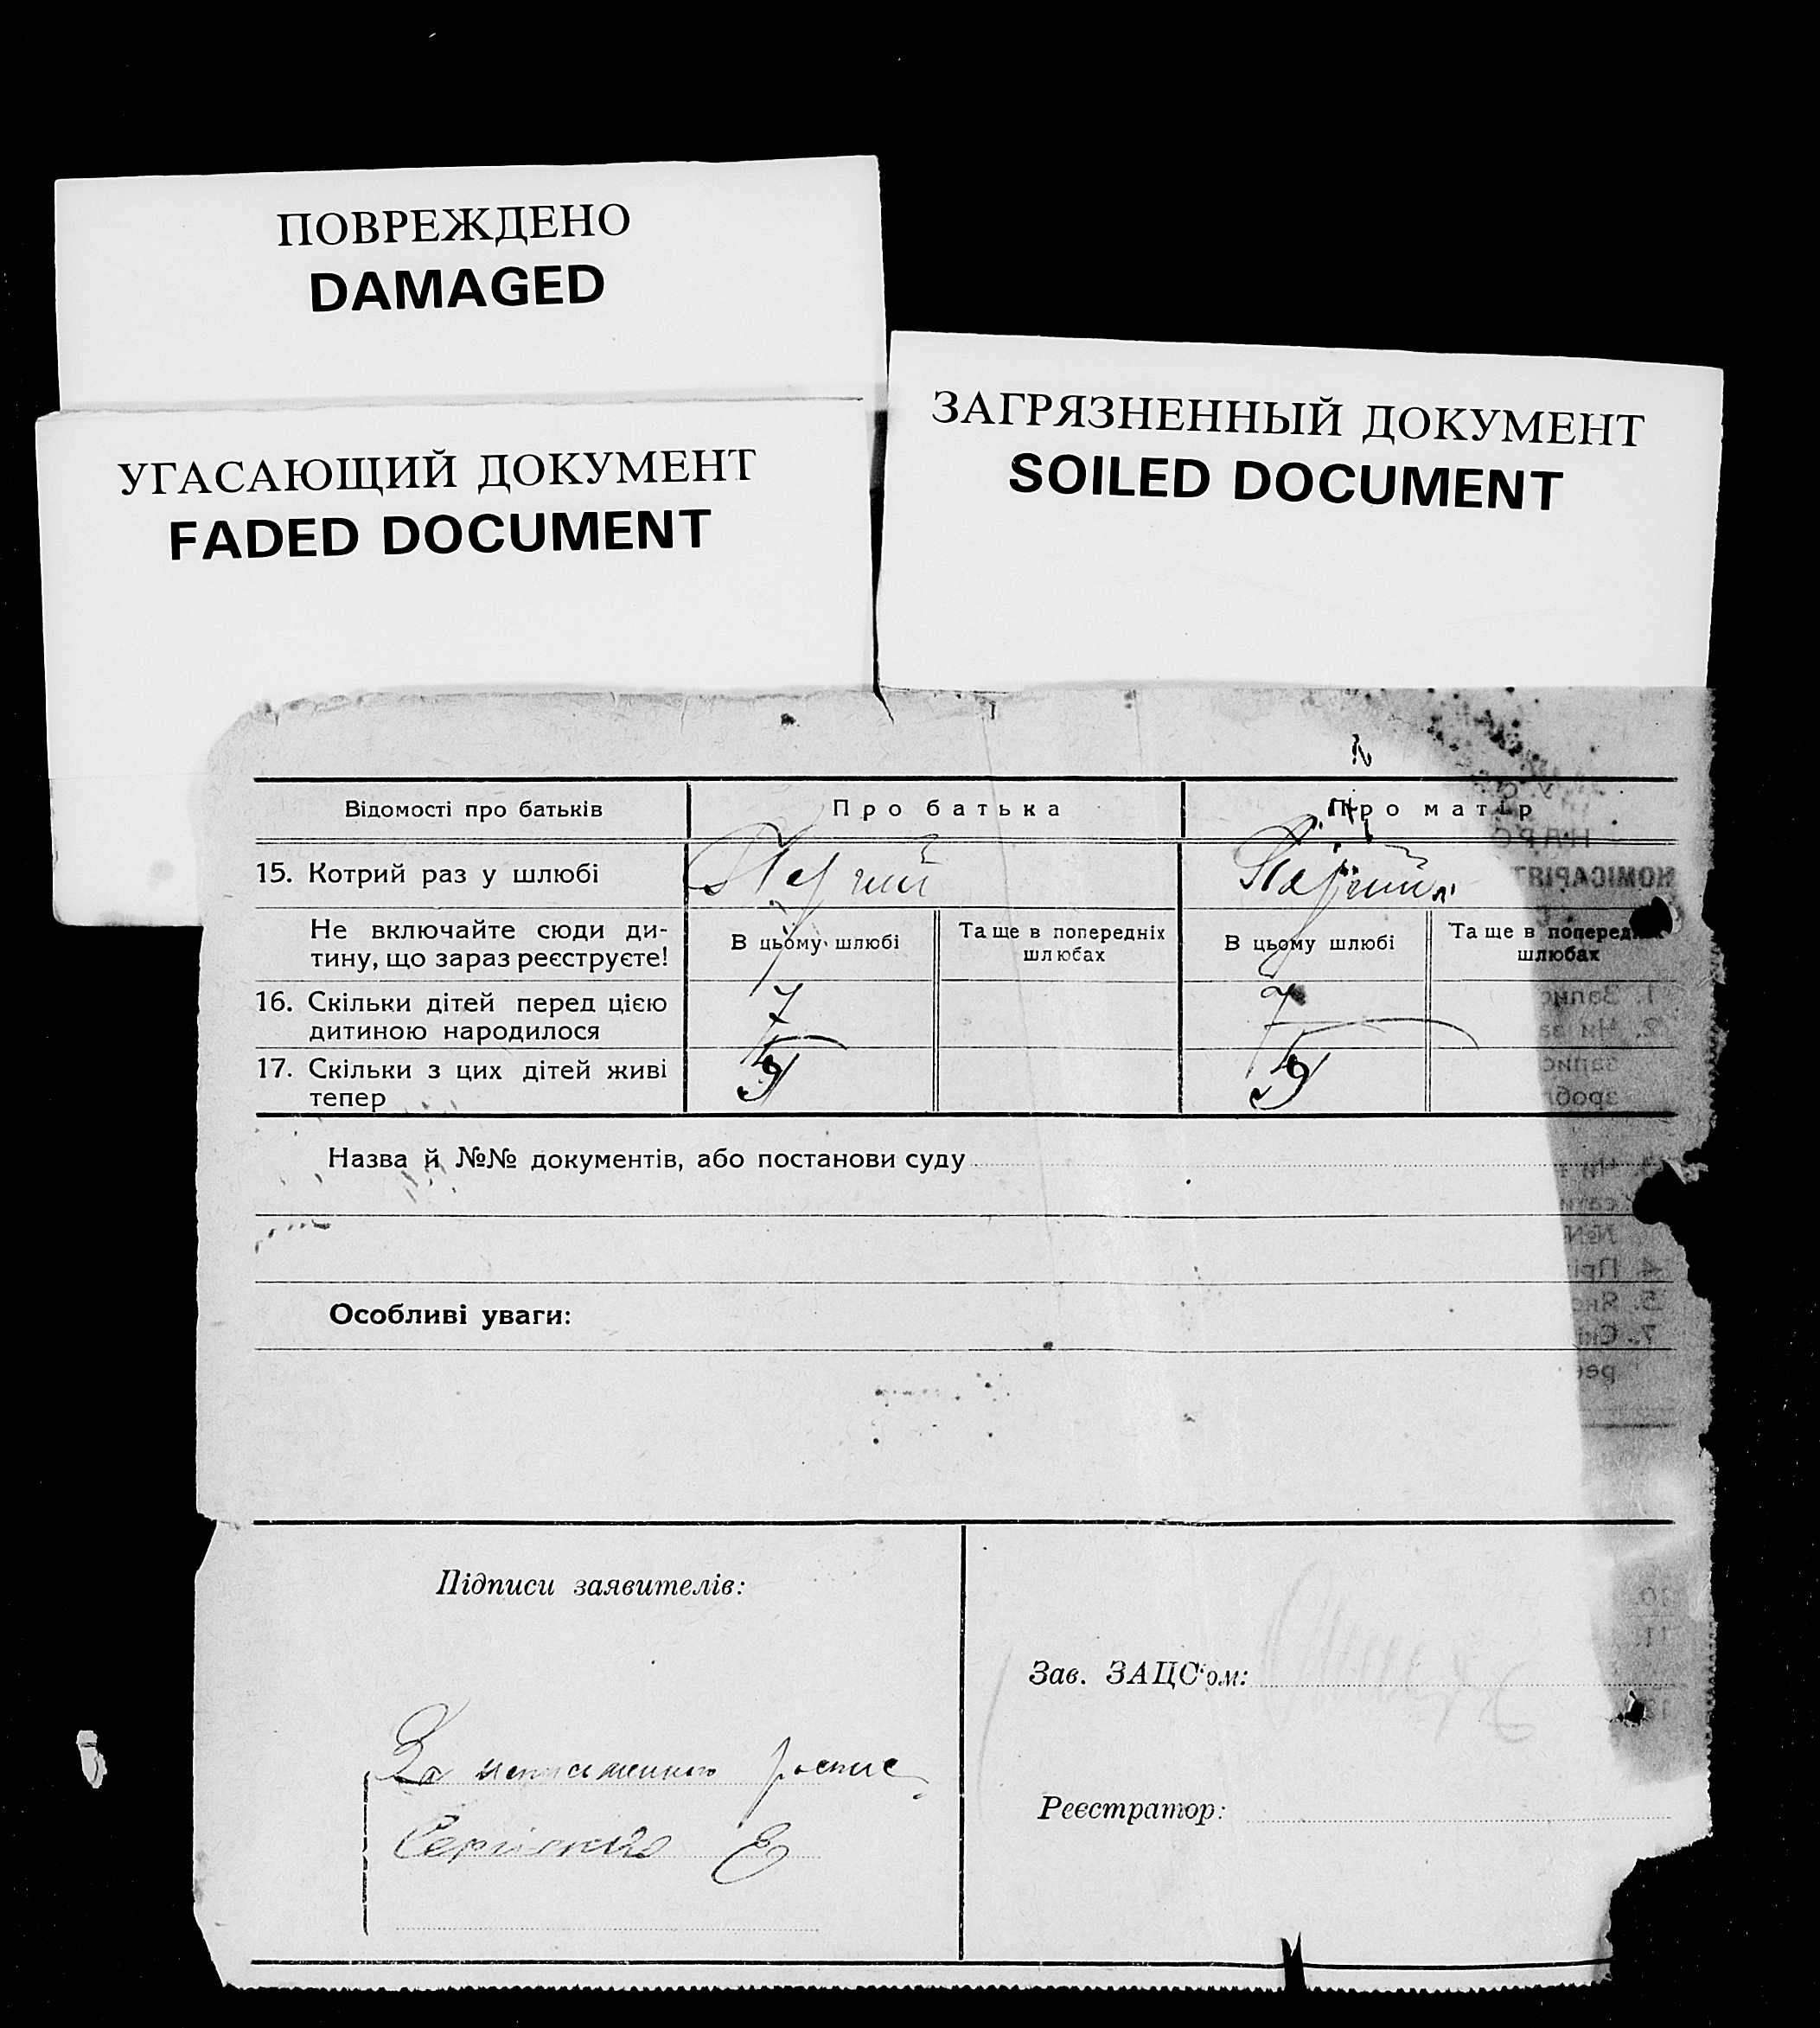 ПОВРЕЖДЕНО
DAMAGED
УГАСАЮЩИЙ ДОКУМЕНТ
FADED DOCUMENT
ЗАГРЯЗНЕННЫЙ ДОКУМЕНТ
SOILED DOCUMENT
Відомості про батьків
Про батька
Про матір
15. Котрий раз у шлюбі
Не включайте сюди ди-
тину, що зараз реєструєте!
В цьому шлюбі
Та ще в попередніх
шлюбах
В цьому шлюбі
Та ще в попередніх
шлюбах
16. Скільки дітей перед цією
дитиною народилося
7
7
17. Скільки з цих дітей живі
тепер
Назва й №№ документів, або постанови суду
Особливі уваги:
Підписи заявителів:
За
Зав. ЗАЦС'ом:
Реєстратор: